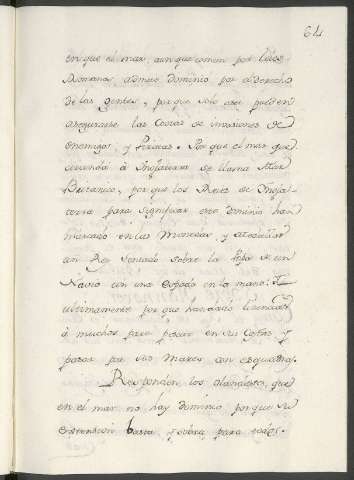 64
en que el mar, aunque comun por
Romano, admite dominio por el derecho
de las gentes, porque solo assi pueden
asegurarse las Costas de invasiones de
enemigos, y Piratas. Por que el mar que
circunda à Inglaterra se llama Mar
Britanico, porque los Reyes de Ingla-
terra para significar este dominio han
marcado en las Monedas, y
un Rey sentado sobre la Popa de un
Navio con una espada en la mano: Y
ultimamente por que han dado licencias
à muchos para pescar en sus Costas y
pasar por sus Mares con esquadras.
Responden los olandeses, que
en el mar no hay dominio porque su
extension basta, y sobra para todos.